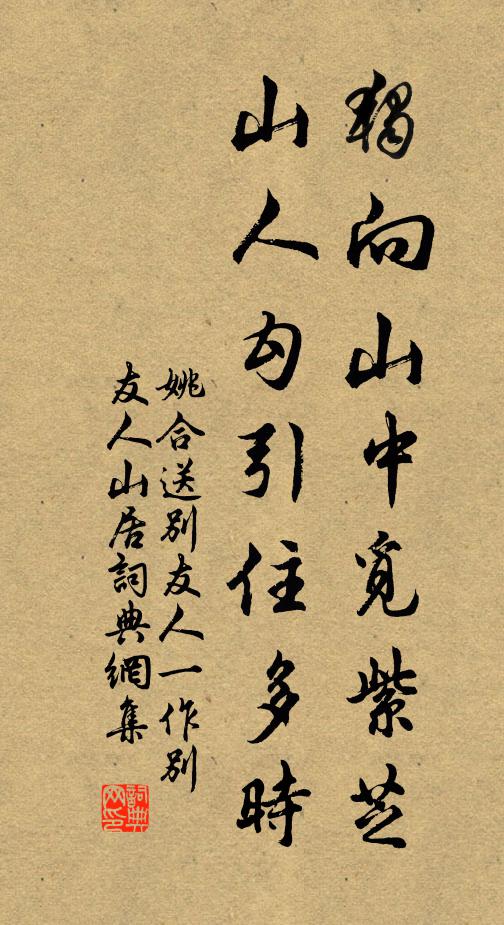 獨向山中覓紫芝
山人勾引住多時
姚合送別友人一作別
友人山居詞典網集
詞典網印